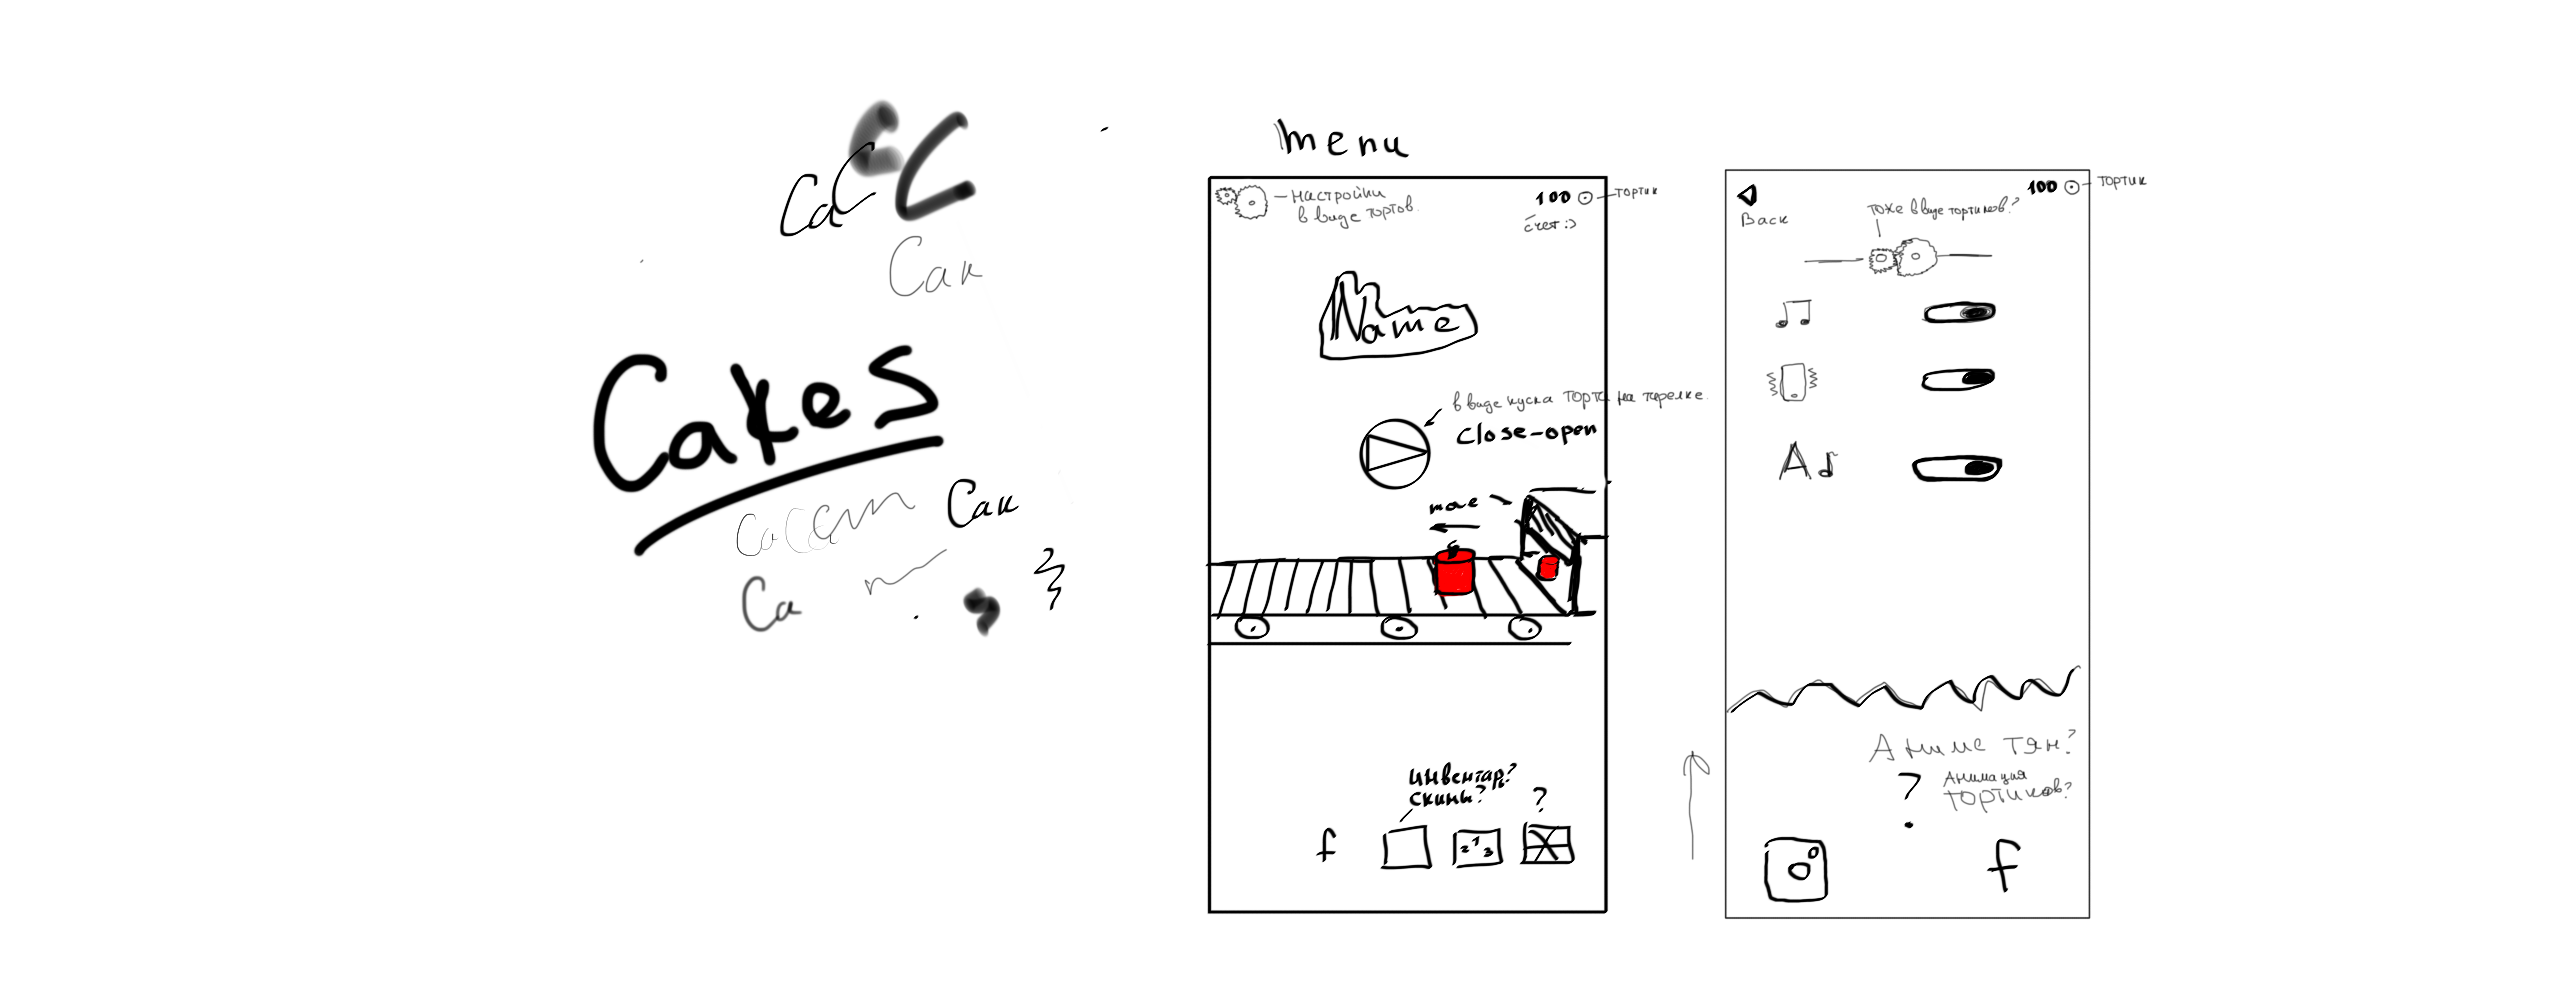 Ca
C
C
C
Cak
Cakes
Cak
Ca
menu
настройки
в виде тортов.
100
тортик
счет:)
Name
в виде куска торта на тарелке.
close-open
move
инвентар?
скины?
?
f
2 1 3
Back
100
тортик
тоже в виде тортиков?
A
Аниме тян?
?
Анимация
тортиков?
f